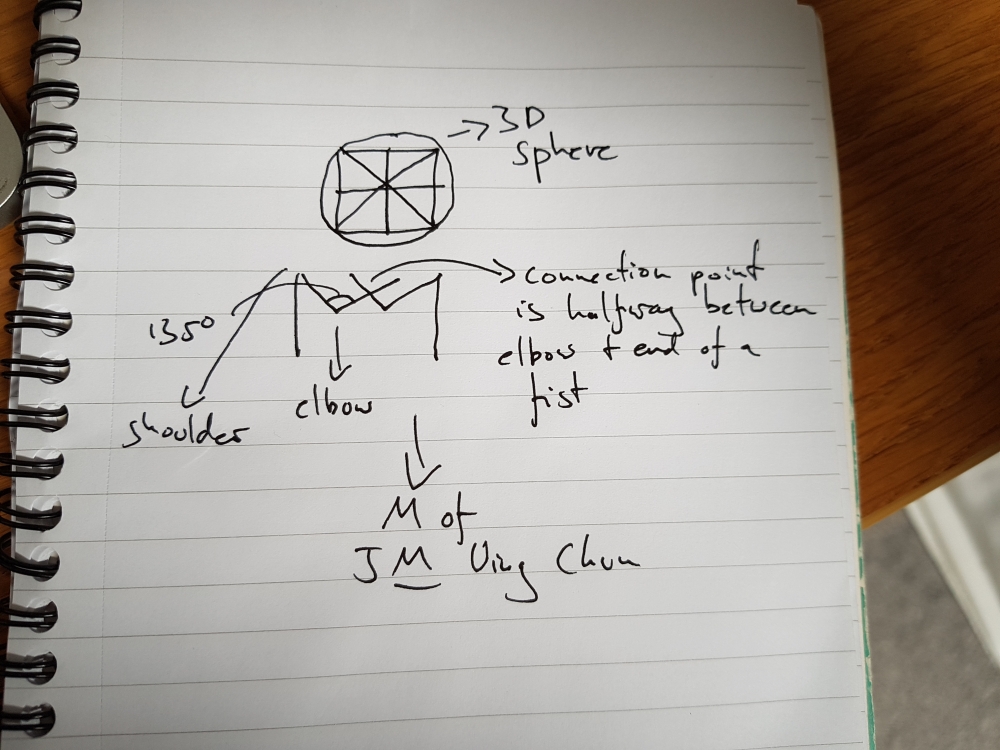 → 3D
sphere
135°
connection point
is halfway between
elbow + end of a
fist
shoulder
elbow
M of
JM Ving Chun